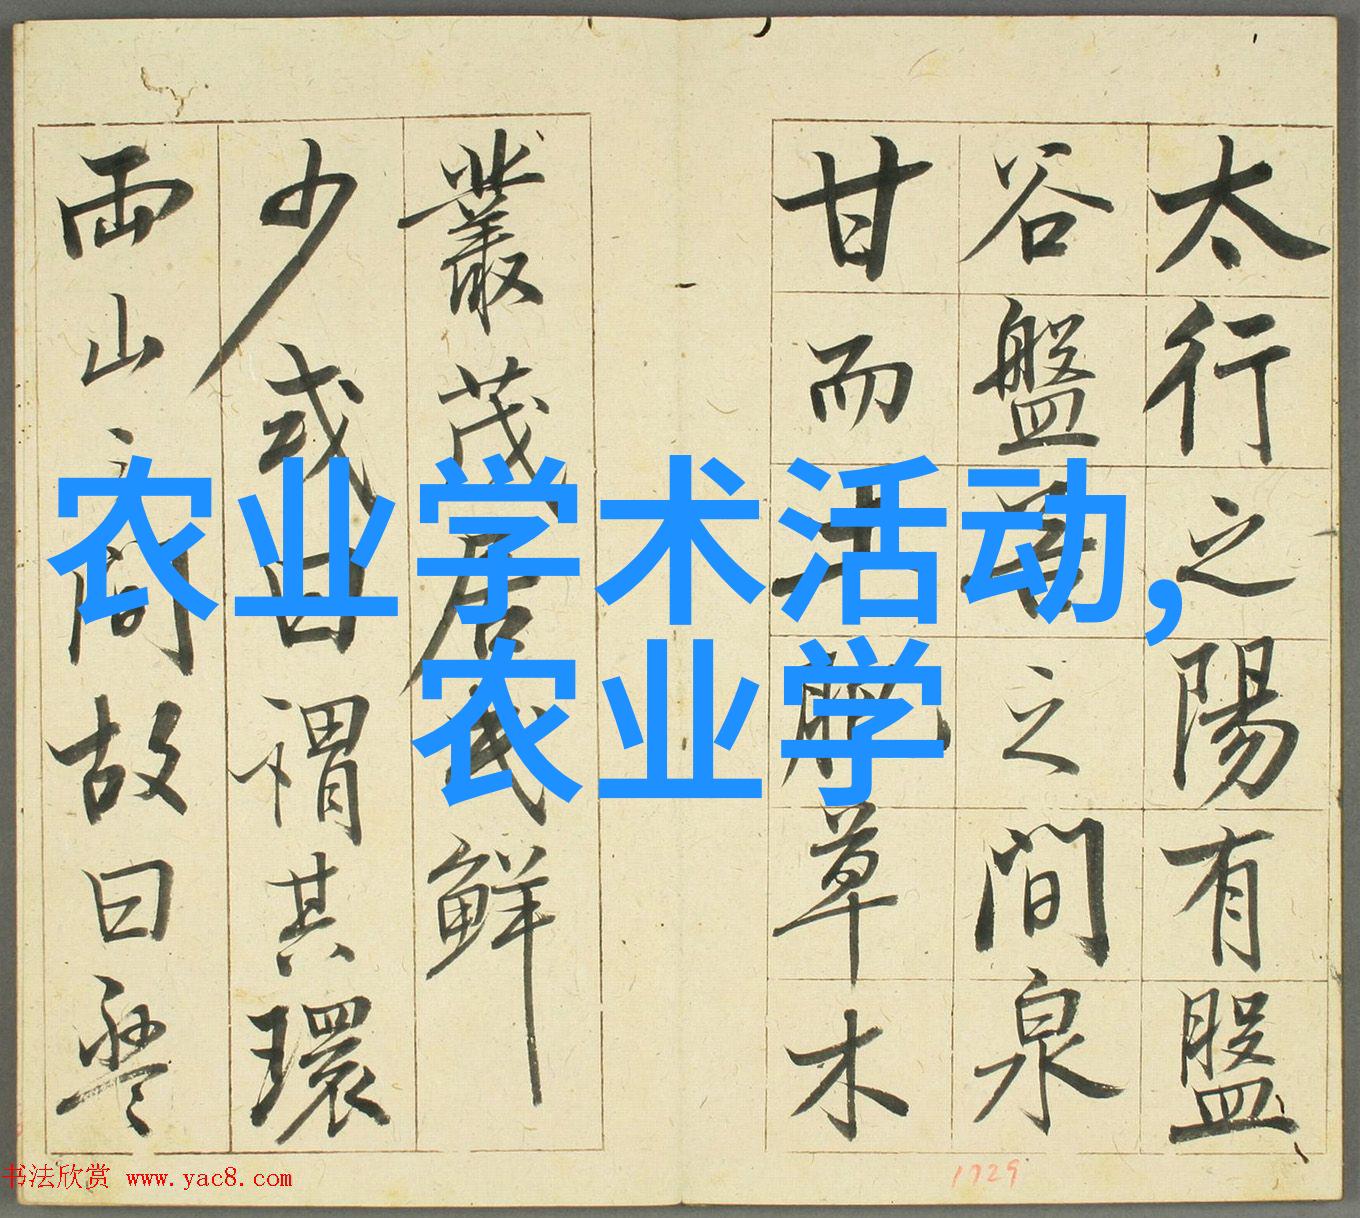 太行之陽有盤
谷盤谷之間泉
甘而土肥草木
叢茂居民鮮
少或曰謂其環
兩山之間故曰
农业学术活动,
农业学
书法欣赏 www.yac8.com
1729